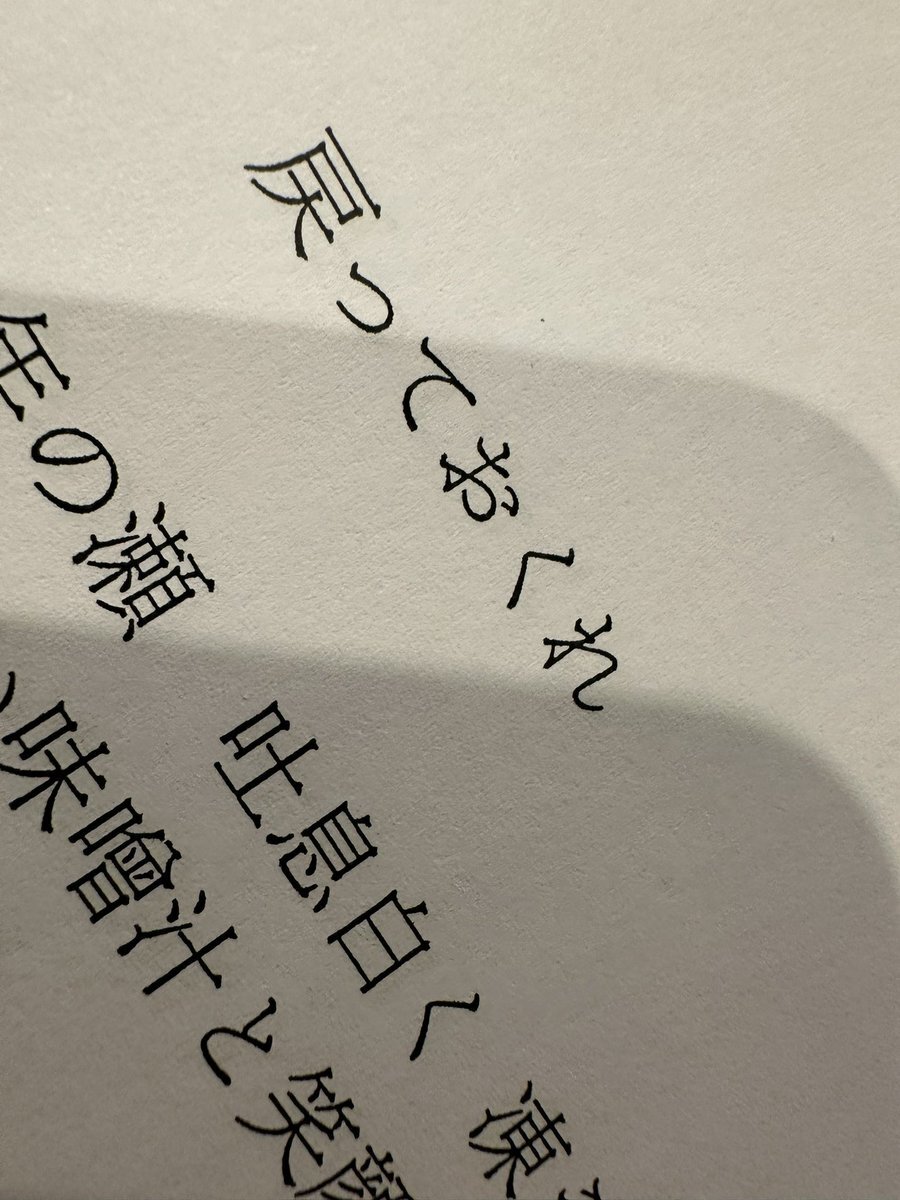 戻っておくれ
年の瀬 吐息白く 凍
味噌汁と笑顔